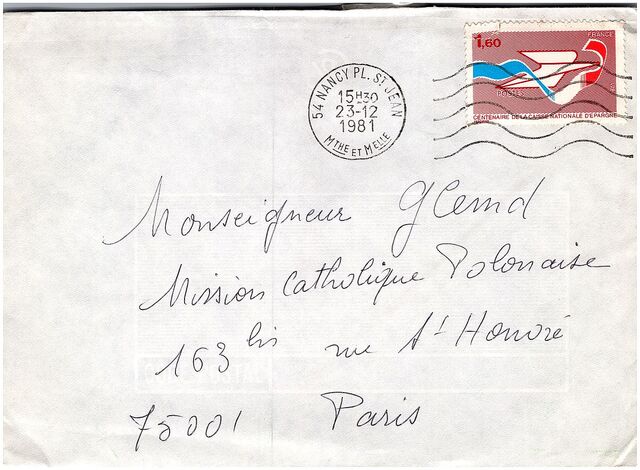 1,60 FRANCE
POSTES
CENTENAIRE DE LA CAISSE NATIONALE D'EPARGNE
54 NANCY PL. ST JEAN
15H30
23-12
1981
MTHE ET MELLE
Monseigneur
Mission Catholique Polonaise
163 bis rue St Honoré
75001 Paris